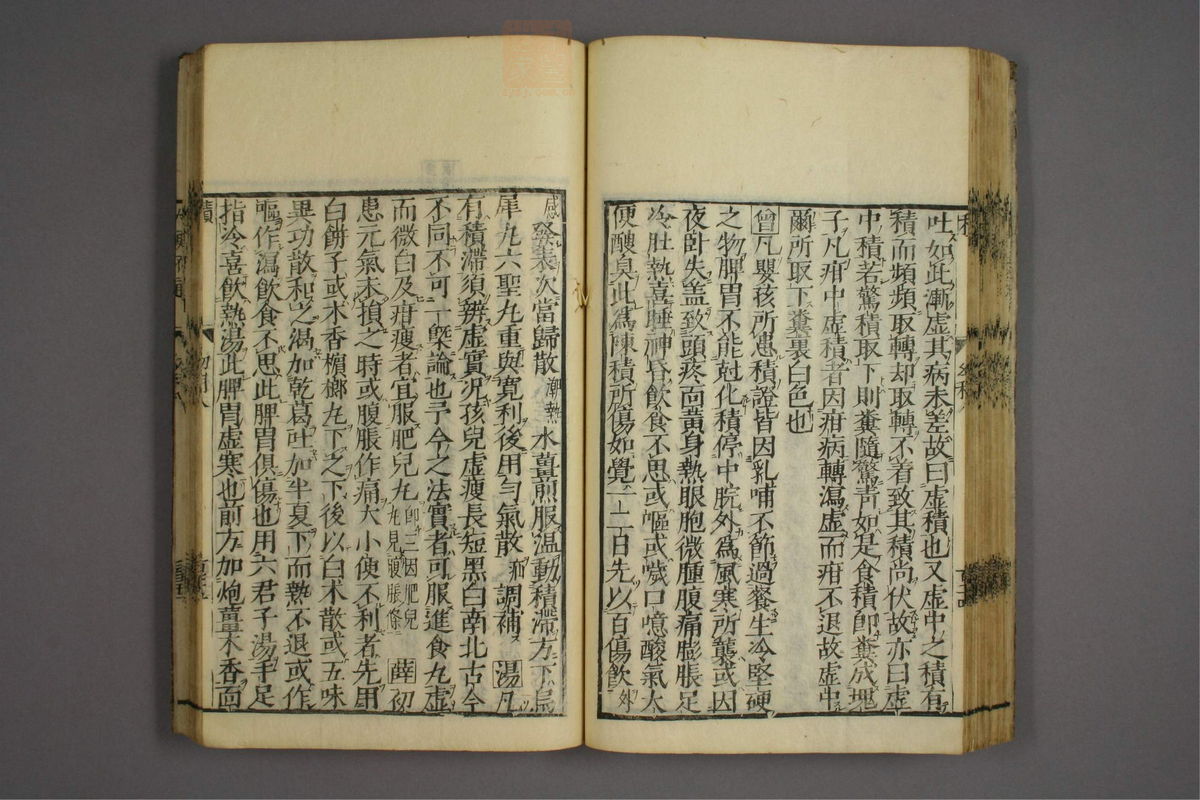 吐如此漸虛其病未差故曰虛積也又虛中之積有
積而頻頻取轉却取轉不着致其積尚伏故亦曰虛
中積若驚積取下則糞隨驚青如是食積卽糞成塊
子凡疳中虛積者因疳病轉瀉虛而疳不退故虛中
爾所取下糞裏白色也
曾凡嬰孩所患積證皆因乳哺不節過餐生冷堅硬
之物脾胃不能尅化積停中脘外爲風寒所襲或因
夜卧失盖致頭疼面黃身熱眼胞微腫腹痛膨脹足
冷肚熱喜睡神昏飲食不思或嘔或噦口噫酸氣大
便酸臭此爲陳積所傷如覺一二日先以百傷飲外
感發表次當歸散潮熱水薑煎服温動積滯方下烏
犀丸六聖丸重與寛利後用勻氣散疳調補湯凡
有積滯須辨虛實况孩兒虛瘦長短黑白南北古今
不同不可一槩論也予今之法實者可服進食丸虛
而微白及疳瘦者宜服肥兒丸卽三因肥兒丸見脹條薛初
患元氣未損之時或腹脹作痛大小便不利者先用
白餅子或木香檳榔丸下之下後以白术散或五味
異功散和之渴加乾葛吐加半夏下而熱不退或作
嘔作瀉飲食不思此脾胃俱傷也用六君子湯手足
指冷喜飲熱湯此脾胃虛寒也前方加炮薑木香面